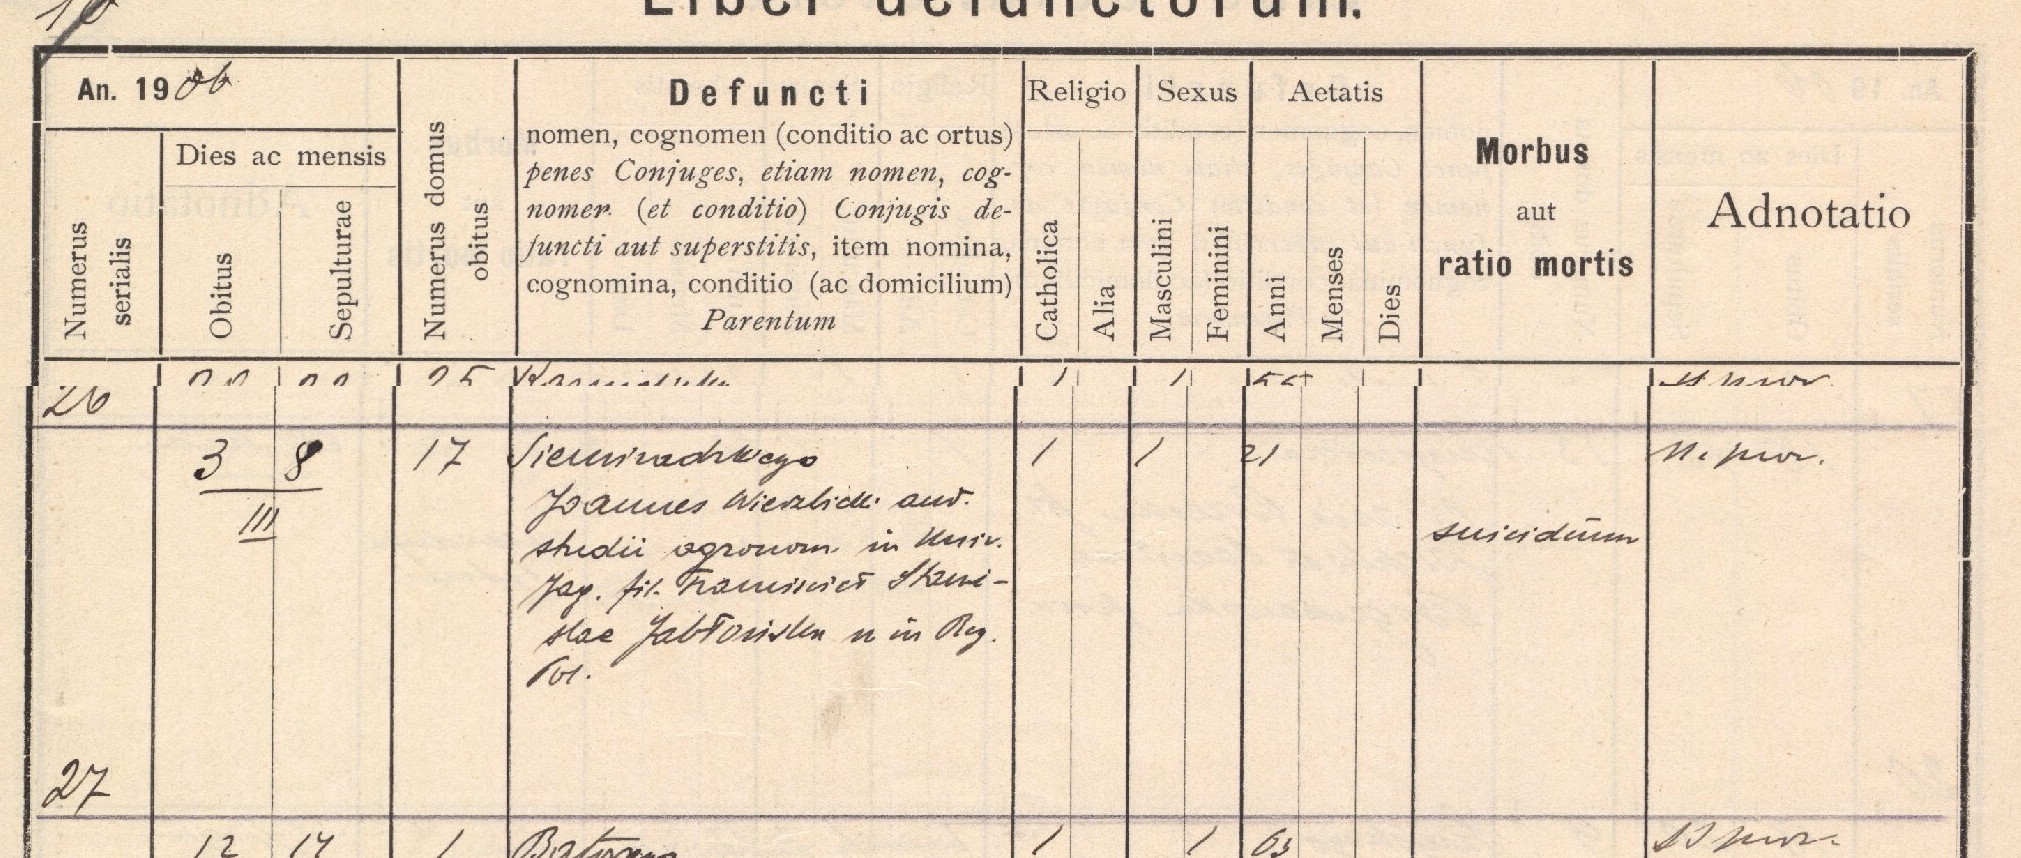 10
Liber defunctorum.
An. 1906
Numerus serialis
Dies ac mensis
Obitus
Sepulturae
Numerus domus obitus
Defuncti
nomen, cognomen (conditio ac ortus)
penes Conjuges, etiam nomen, cog-
nomen (et conditio) Conjugis de-
functi aut superstitis, item nomina,
cognomina, conditio (ac domicilium)
Parentum
Religio
Catholica
Alia
Sexus
Masculini
Feminini
Aetatis
Anni
Menses
Dies
Morbus
aut
ratio mortis
Adnotatio
25 1 1
26
3 8 17 Siemiradzkiego 1 1 21
III
Joannes Wierzbicki aud.
studii agronom. in Univ. suicidium
Jag. fil. Francisci et Stani-
slae Jabłońska n in Reg.
Pol.
27
12 14 1 Batorego 1 1 63